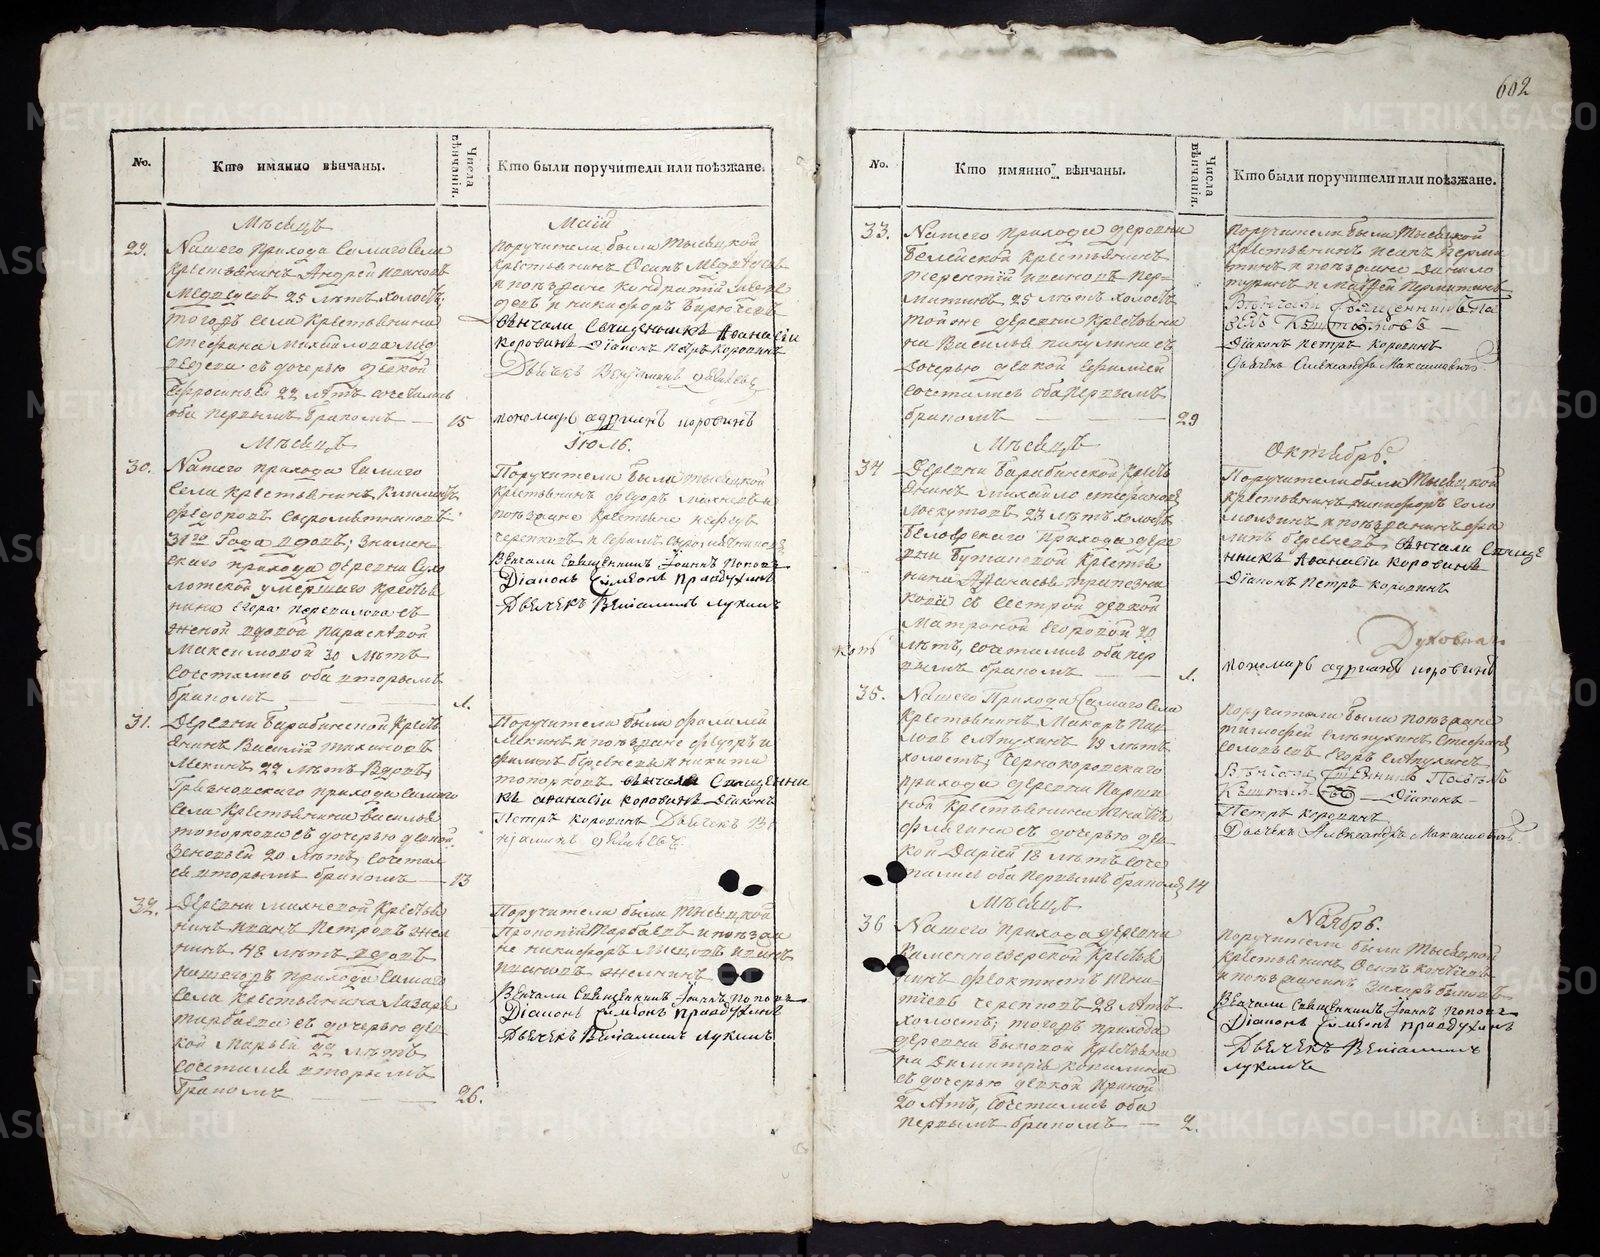 602
No.
Кто имянно вѣнчаны.
Числа вѣнчанія.
Кто были поручители или поѣзжане.
Мѣсяцъ
Маій
29.
Нашего прихода Самаго Села
крестьянинъ Андрей Ивановъ
Медведевъ 25 лѣтъ холостъ,
тогожъ Села крестьянина
Стефана Михайлова Мед
ведева съ дочерью девкой
Ефросиньей 22 лѣтъ сочетались
оба первымъ бракомъ
15
поручители были тысяцкой
крестьянинъ Осипъ Медведевъ
и поѣзжане Кондратій
и Никифоръ
вѣнчали Священникъ Аѳанасій
Коровинъ Діаконъ Петръ Коровинъ
Дьячекъ Веніаминъ
пономарь Адріанъ Коровинъ
Мѣсяцъ
Іюль.
30.
Нашего прихода Самаго
Села крестьянинъ Климентъ
Федоровъ Сыромятниковъ
31го Года вдовъ; Знамен
скаго прихода деревни Сухо
ложской умершаго крестья
нина Егора Перевалова съ
женой вдовой Параскевой
Максимовой 30 лѣтъ
Сочетались оба вторымъ
бракомъ
1.
Поручители были тысяцкой
крестьянинъ Федоръ
поѣзжане крестьяне
Вѣнчали Священникъ Іоаннъ Поповъ
Діаконъ Симеонъ Правдухинъ
Дьячекъ Веніаминъ Лукинъ
31.
Деревни Барабинской кресть
янинъ Василій Тихановъ
Мекинъ 22 лѣтъ Вдовъ,
Грязновскаго прихода Самаго
Села крестьянина Василья
Топоркова съ дочерью девкой
Зеновьей 20 лѣтъ, Сочетал
ся вторымъ бракомъ
13
Поручители были
Мекинъ и поѣзжане Федоръ и
и Никита
Топорковъ вѣнчали Священни
къ Аѳанасій Коровинъ Діаконъ
Петръ Коровинъ Дьячекъ Ве
ніаминъ
32.
Деревни крестья
нинъ Иванъ Петровъ Жел
нинъ 48 лѣтъ вдовъ
нашегожъ прихода Самаго
Села крестьянина Лазаря
Тарбаева съ дочерью дев
кой Марьей 22 лѣтъ
Сочетались вторымъ
бракомъ
26.
Поручители были тысяцкой
Прокопій Тарбаевъ и поѣзжа
не Никифоръ Иванъ
Ивановъ Желнинъ
Вѣнчали Священникъ Іоаннъ Поповъ
Діаконъ Симеонъ Правдухинъ
Дьячекъ Веніаминъ Лукинъ
No.
Кто имянно вѣнчаны.
Числа вѣнчанія.
Кто были поручители или поѣзжане.
33.
Нашего прихода деревни
Белейской крестьянинъ
Терентій Ивановъ Пер
митинъ 25 лѣтъ холостъ
тойже деревни крестьяни
на Василья Пикулина съ
дочерью девкой Ефиміей
сочетались оба первымъ
бракомъ
29
поручители были тысяцкой
крестьянинъ Исакъ Перми
тинъ и поѣзжане Данило
и Матфей Пермитинъ
Вѣнчали Священникъ Па
велъ
Діаконъ Петръ Коровинъ
Дьячекъ Александръ Максимовичъ
Мѣсяцъ
Октябрь.
34
Деревни Барабинской кресть
янинъ Михайло Стефановъ
Лоскутовъ 23 лѣтъ холостъ
Белоярскаго прихода дере
вни крестья
нина Афанасья Трапезни
кова съ Сестрой девкой
Матроной Егоровой 20
лѣтъ, сочетались оба пер
вымъ бракомъ
1.
Поручители были тысяцкой
крестьянинъ Никифоръ
и поѣзжанинъ Фи
липъ вѣнчали Священ
никъ Аѳанасій Коровинъ
Діаконъ Петръ Коровинъ
Духовна
пономарь Адріанъ Коровинъ
35.
Нашего Прихода Самаго Села
крестьянинъ Макаръ Пав
ловъ Елпухинъ 19 лѣтъ
холостъ; Чернокоровскаго
прихода деревни Парши
ной крестьянина Игнатья
съ дочерью дев
кой Дарьей 18 лѣтъ Соче
тались оба первымъ бракомъ
14
поручители были поѣзжане
Тимофей Елпухинъ Стефанъ
Егоръ Елпухинъ
Вѣнчали Священникъ Павелъ
Діаконъ
Петръ Коровинъ
Дьячекъ Александръ Максимовичъ
Мѣсяцъ
Ноябрь.
36
Нашего прихода деревни
Каменноозерской крестья
нинъ Феоктистъ Игна
тьевъ Черепновъ 28 лѣтъ
холостъ; тогожъ прихода
деревни Быковой крестьяни
на Димитрія
съ дочерью девкой Ириной
20 лѣтъ, Сочетались оба
первымъ бракомъ
2.
поручители были тысяцкой
крестьянинъ Осипъ
и поѣзжанинъ Захаръ Быковъ
Вѣнчали Священникъ Іоаннъ Поповъ
Діаконъ Симеонъ Правдухинъ
Дьячекъ Веніаминъ
Лукинъ
METRIKI.GASO-URAL.RU